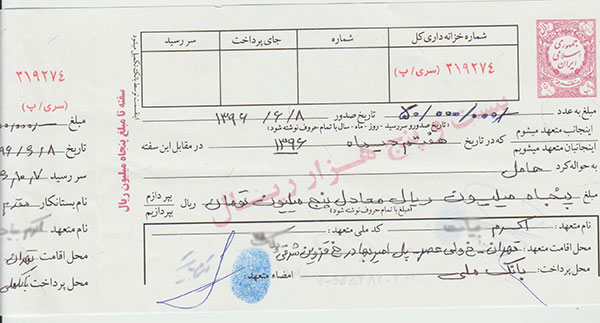 شماره خزانه داری کل
شماره
جای پرداخت
سر رسید
۳۱۹۲۷۴
(سری/ب)
جمهوری
اسلامی
ایران
۳۱۹۲۷۴
(سری/ب)
سفته تا مبلغ پنجاه میلیون ریال
بیست و پنج هزار ریال
مبلغ به عدد ۵۰/۰۰۰/۰۰۰/ تاریخ صدور ۱۳۹۶/۶/۸
(تاریخ صدور و سررسید - روز - ماه - سال با تمام حروف نوشته شود)
اینجانب متعهد میشوم
اینجانبان متعهد میشویم
که در تاریخ هفتم دیماه ۱۳۹۶ در مقابل این سفته
به حواله کرد حامل
مبلغ پنجاه میلیون ریال معادل پنج میلیون تومان ریال
بپردازم
بپردازیم
(مبلغ با تمام حروف نوشته شود)
نام متعهد: اکرم کد ملی متعهد:
محل اقامت متعهد: تهران - خ ولی عصر - پل امیربهادر خ قزوین شرقی
محل پرداخت: بانک ملی امضاء متعهد:
مبلغ
تاریخ ۸
سر رسید
نام بستانکار
نام متعهد اکرم
محل اقامت تهران
محل پرداخت بانک ملی